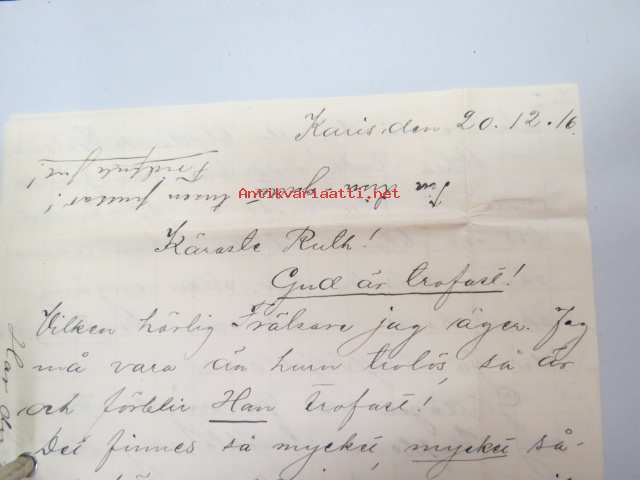 Karis den 20.12.16.
Antikvariaatti.net
Käraste Ruth!
Gud är trofast!
Vilken härlig Frälsare jag äger. Jag
må vara än hurn trolös, så är
och förblir Han trofast!
Det finnes så mycket, mycket så-
Har du